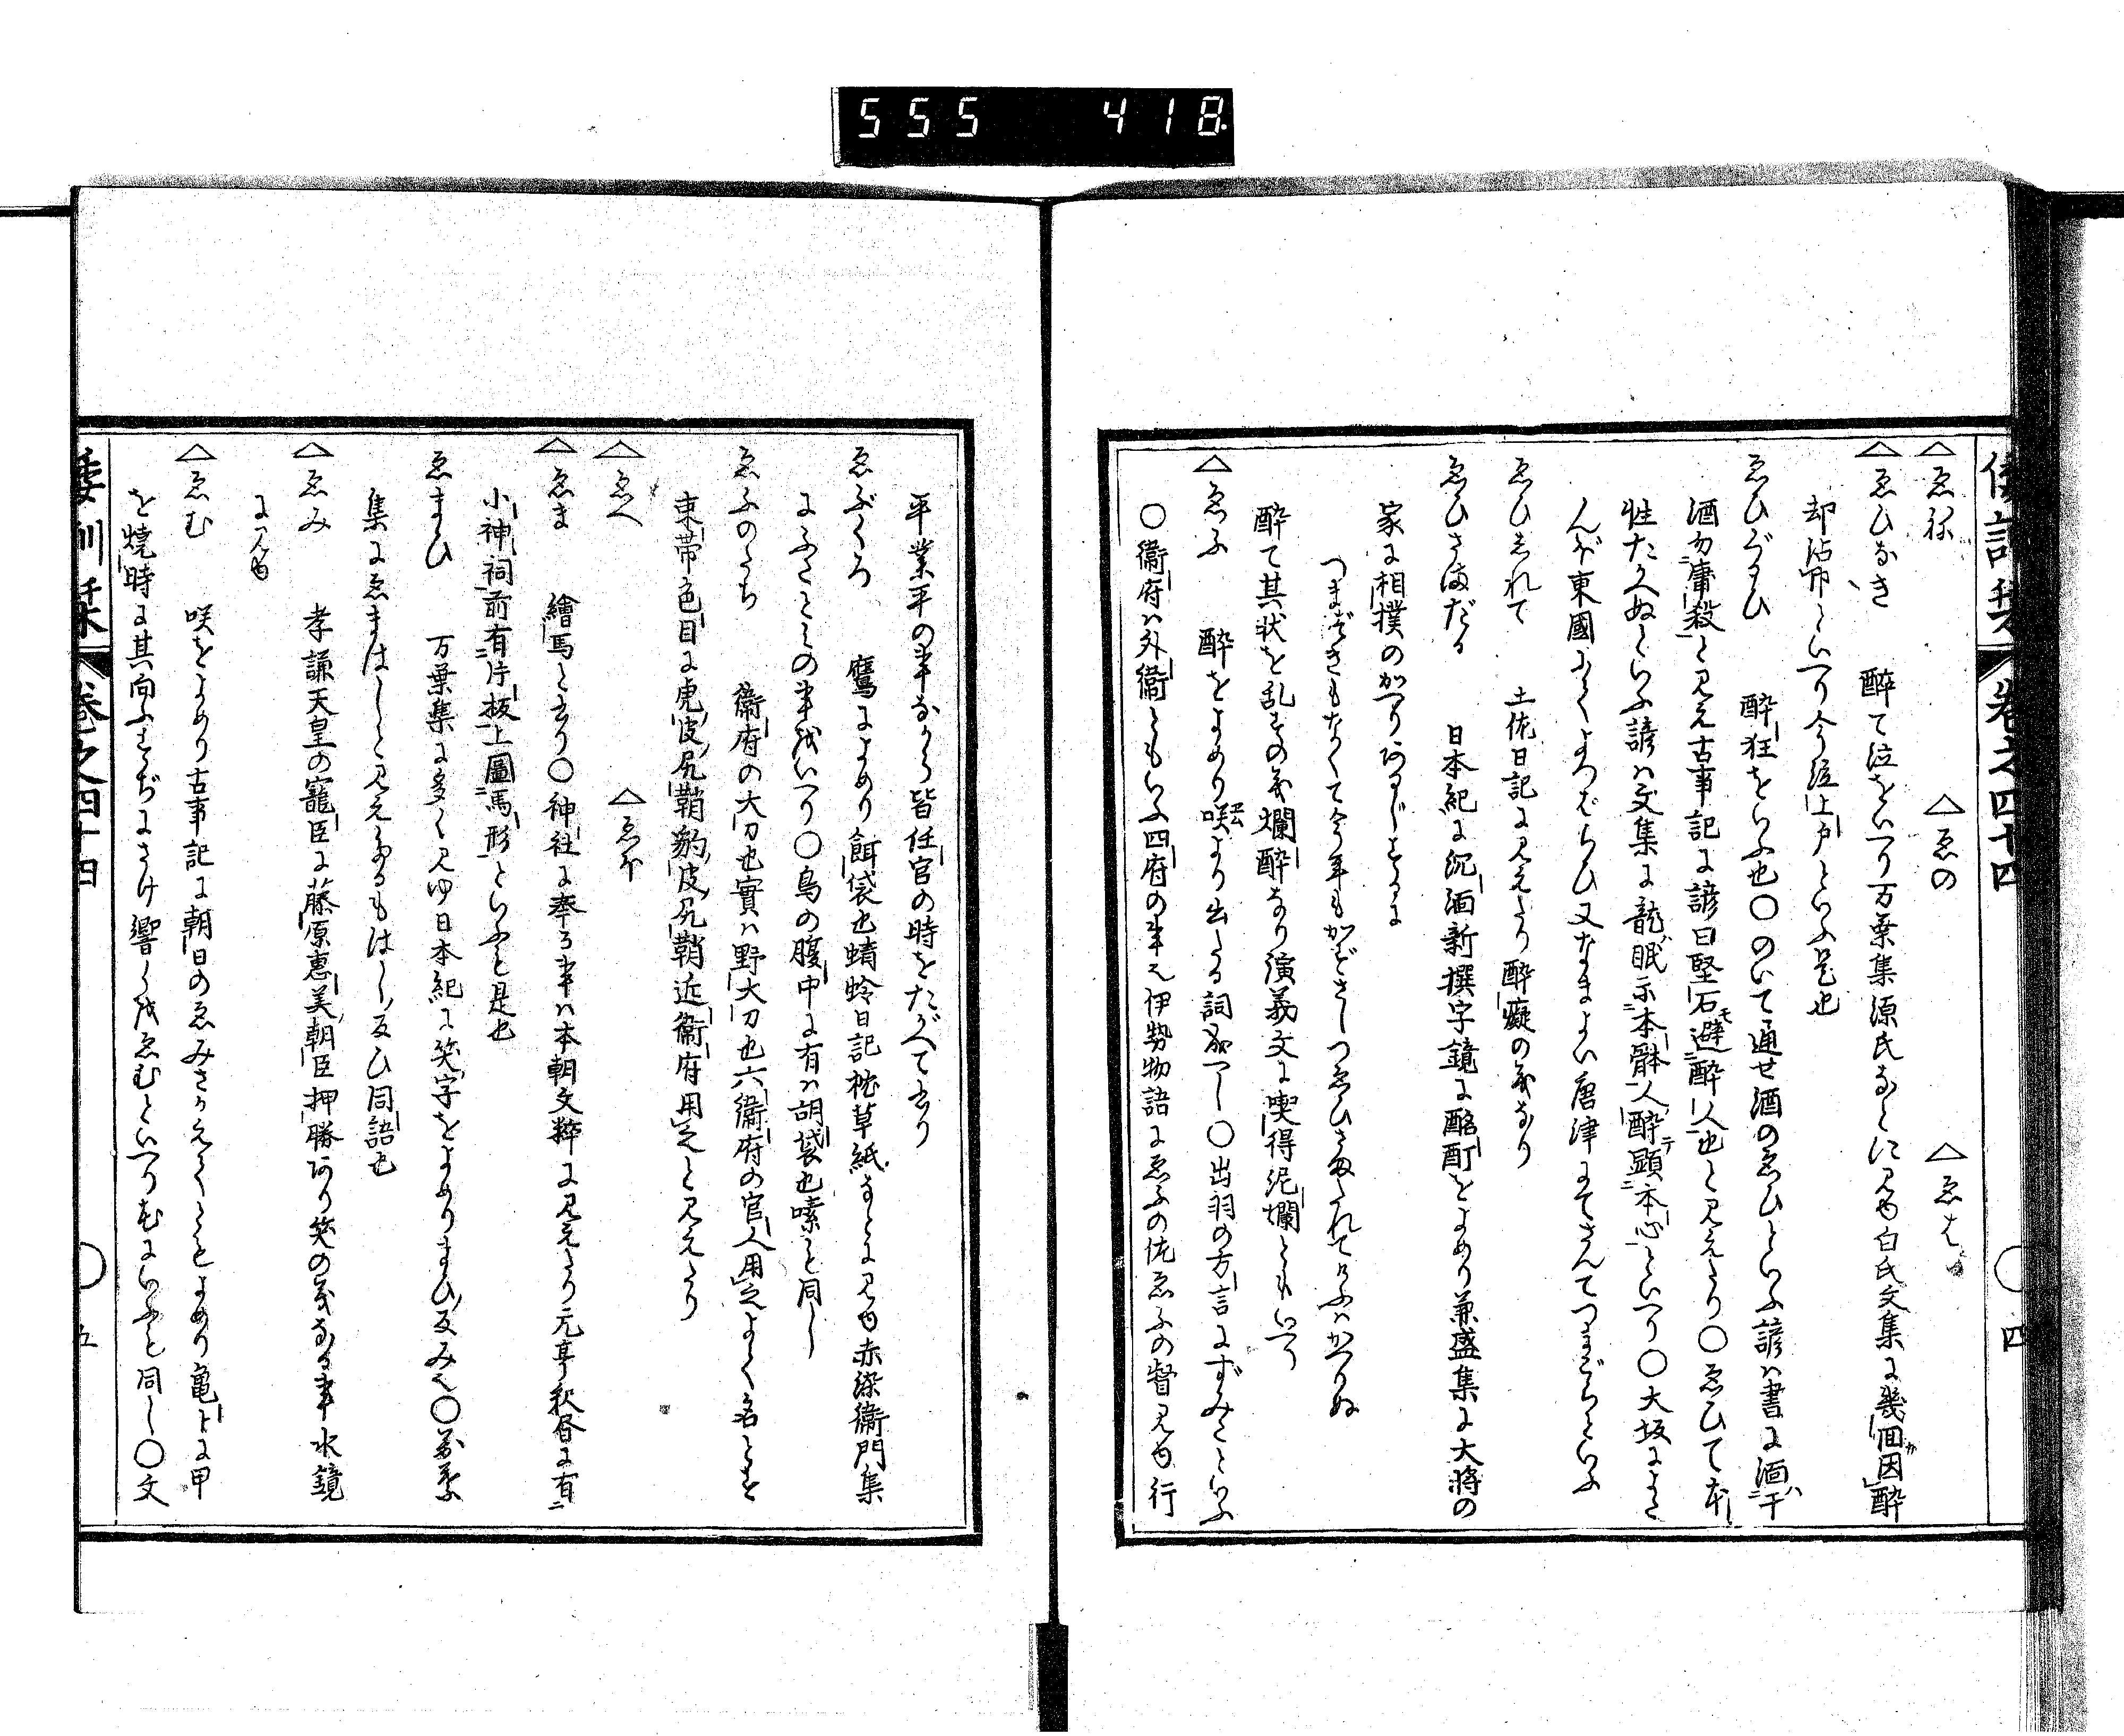 555 418
倭訓栞 卷之四十四 ○ 四
△ゑね △ゑの △ゑは
△ゑひなき 酔て泣をいへり万葉集源氏なとに見ゆ白氏文集に幾回因酔
却沾巾といへり今泣上戸といふ是也
ゑひぐるひ 酔狂をいふ也○のいて通せ酒のゑひといふ諺は書に湎于
酒勿庸殺と見え古事記に諺曰堅石避酔人也と見えたり○ゑひて本
性たかへぬといふ諺は文集に龍眠示本躰人酔顕本心といへり○大坂によた
んぼ東國にてよつはらひ又なまよい唐津にてさんてつまごらといふ
ゑひしれて 土佐日記に見えたり酔癡の義なり
ゑひさまだる 日本紀に沉湎新撰字鏡に酩酊をよめり兼盛集に大将の
家に相撲のかへりあるじするに
つまづきもなくて今年もかどさしつゑひさまたれてけふはかへりぬ
酔て其状を乱すの義爛酔なり演義文に喫得泥爛ともいへり
△ゑふ 酔をよめり咲より出たる詞なるへし○出羽の方言にずみこといふ
○衞府は外衞ともいふ四府の事也伊勢物語にゑふの佐ゑふの督見ゆ行
平業平の事ながら皆任官の時をたがへてあり
ゑぶくろ 鷹によめり餌袋也蜻蛉日記枕草紙なとに見ゆ赤染衞門集
にふたところの事をいへり○鳥の腹中に有は胡袋也嗉と同し
ゑふのたち 衞府の大刀也實は野大刀也六衞府の官人用之よて名とす
束帶色目に虎皮尻鞘豹皮尻鞘近衞府用之と見えたり
△ゑへ △ゑほ
△ゑま 繪馬と書り○神社に奉る事は本朝文粹に見えたり元亨釈書に有
小神祠前有片板上圖馬形といふも是也
ゑまひ 万葉集に多く見ゆ日本紀に笑字をよめりまひ反み也○万葉
集にゑまはしと見えたるもはし反ひ同語也
△ゑみ 孝謙天皇の寵臣に藤原惠美朝臣押勝あり笑の義なる事水鏡
に見ゆ
△ゑむ 咲をよめり古事記に朝日のゑみさかえくともよめり亀卜に甲
を燒時に其向ふすぢにさけ響くをゑむといへり瓜にいふも同し○文
倭訓栞 卷之四十四 ○ 五